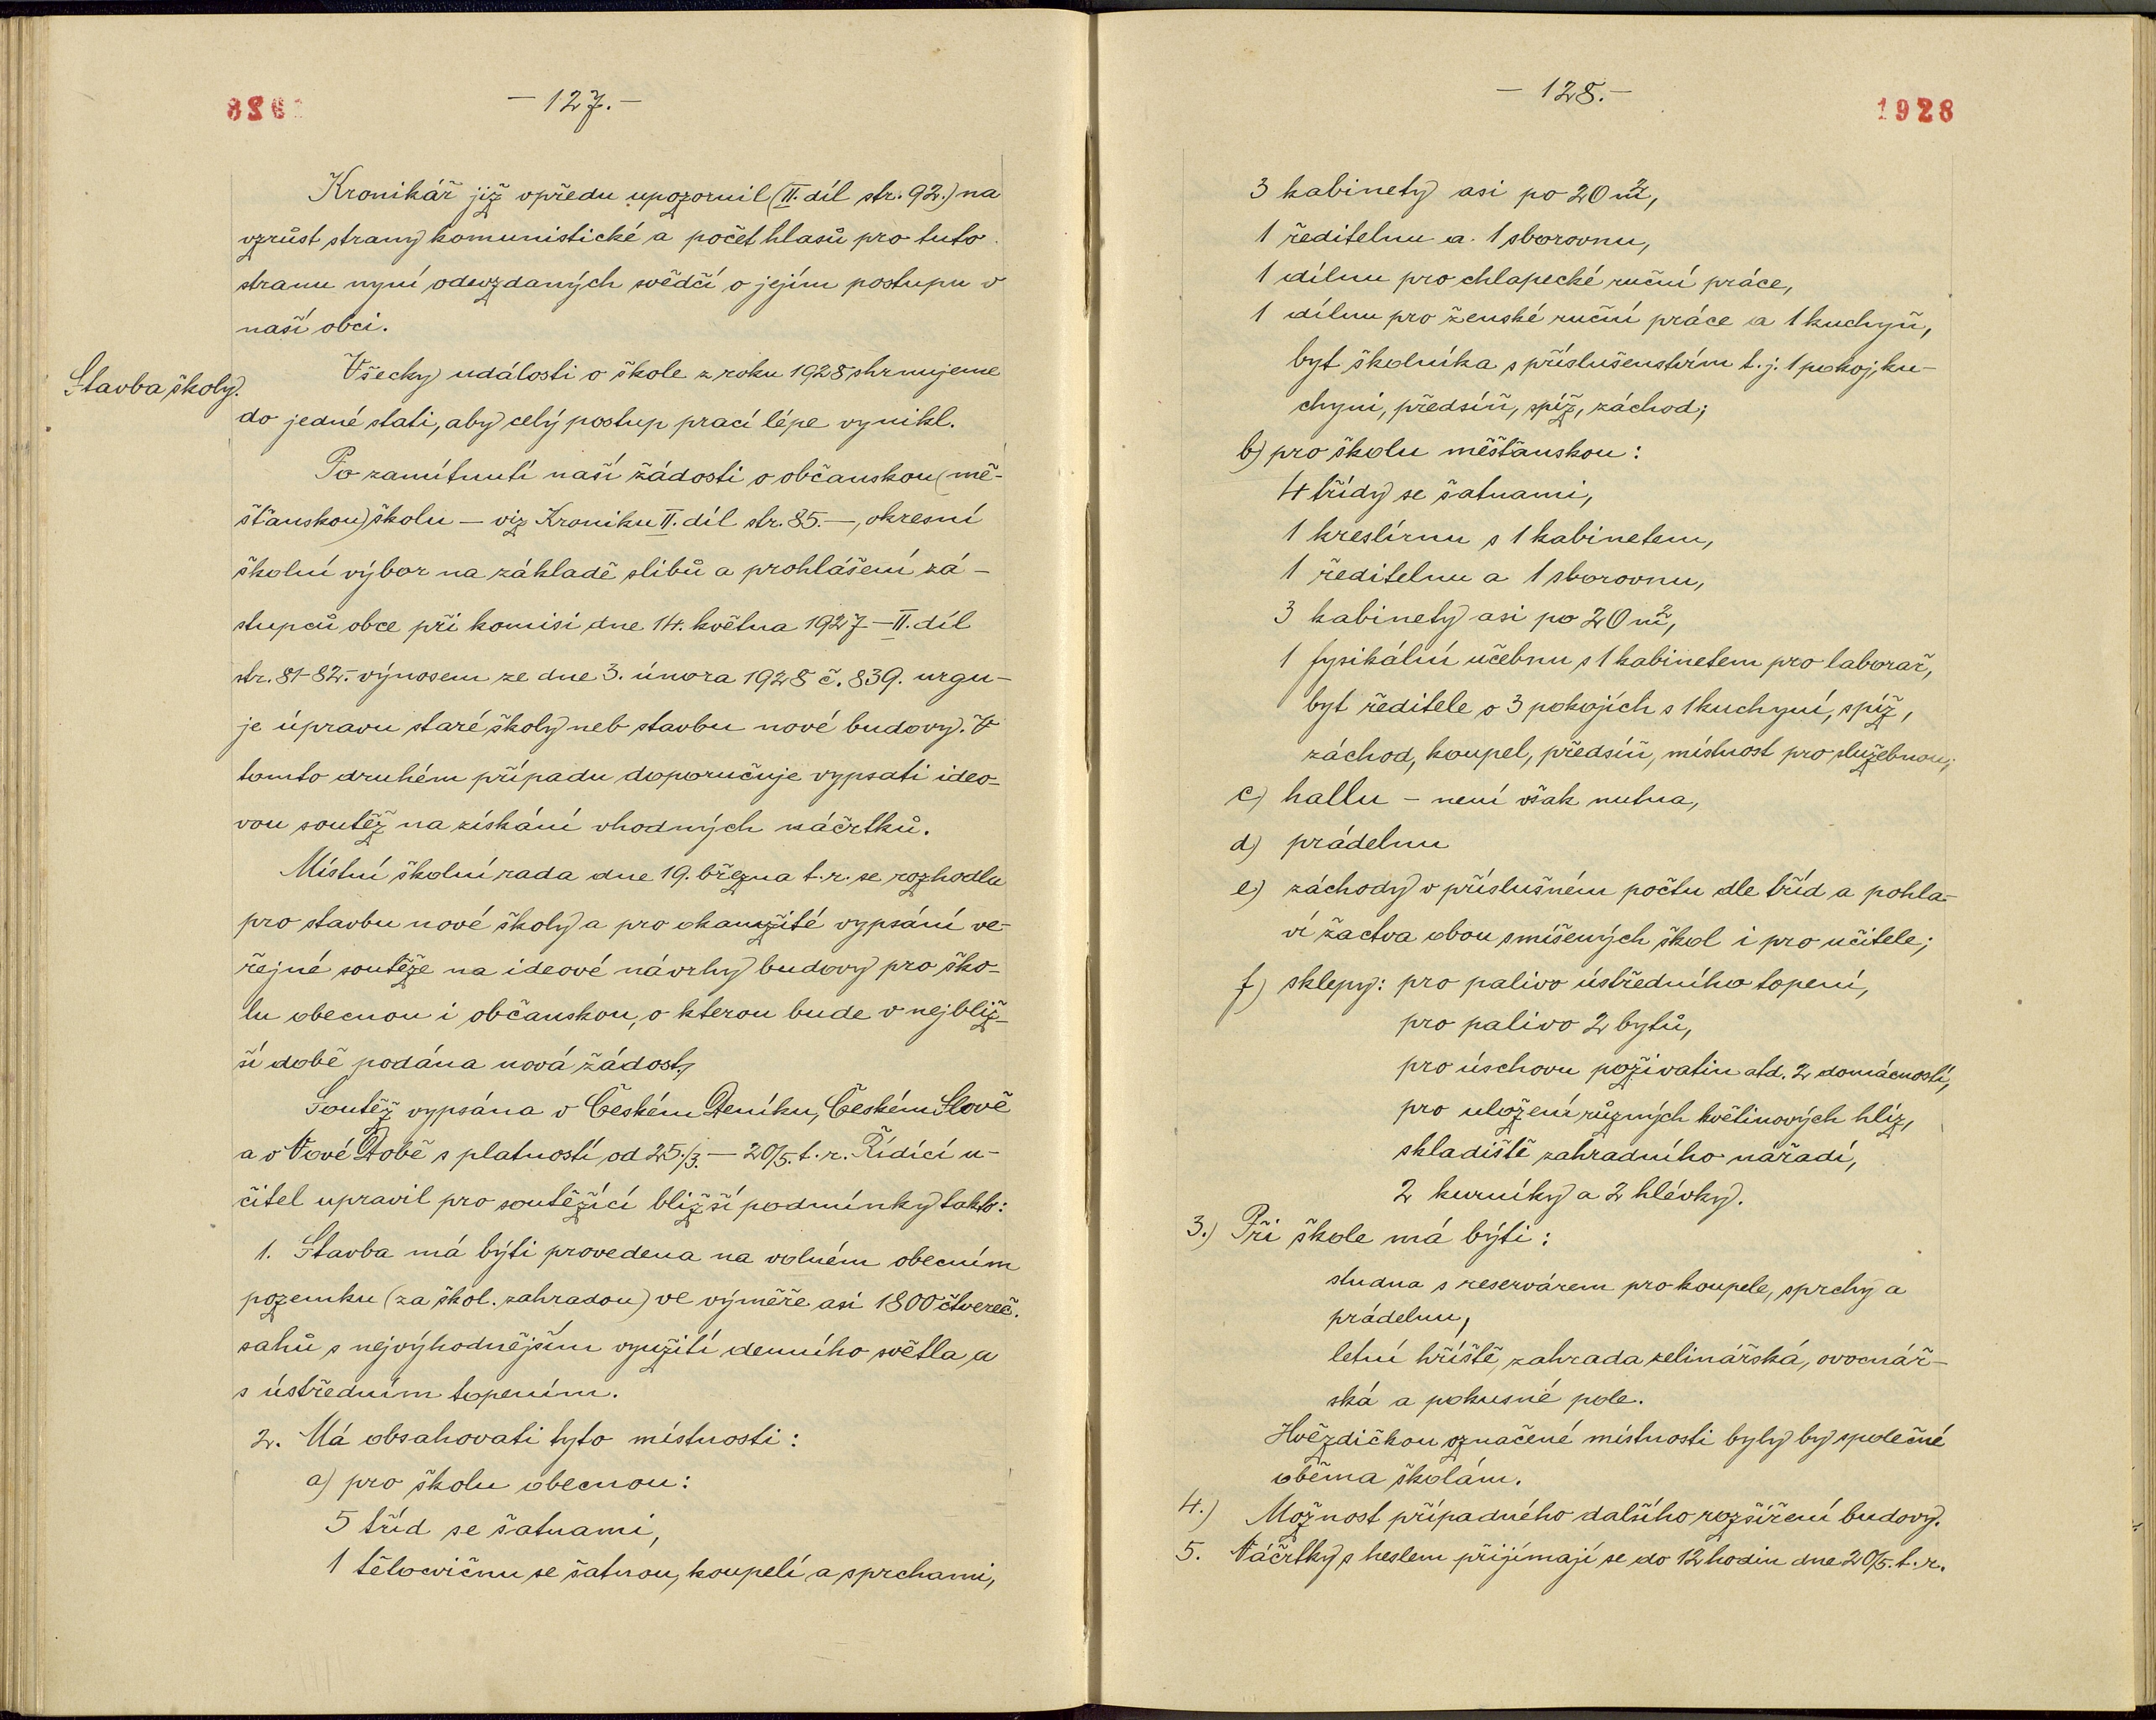 - 127. -
Kronikář již vpředu upozornil (II. díl str. 92.) na
vzrůst strany komunistické a počet hlasů pro tuto
stranu nyní odevzdaných svědčí o jejím postupu v
naší obci.
Stavba školy.
Všecky události o škole z roku 1928 shrnujeme
do jedné stati, aby celý postup prací lépe vynikl.
Po zamítnutí naší žádosti o občanskou (mě-
šťanskou) školu - viz Kroniku II. díl str. 85. -, okresní
školní výbor na základě slibů a prohlášení zá-
stupců obce při komisi dne 14. května 1927 - II. díl
str. 81-82. - výnosem ze dne 3. února 1928 č. 839. urgu-
je úpravu staré školy neb stavbu nové budovy. V
tomto druhém případu doporučuje vypsati ideo-
vou soutěž na získání vhodných náčrtků.
Místní školní rada dne 19. března t. r. se rozhodla
pro stavbu nové školy a pro okamžité vypsání ve-
řejné soutěže na ideové návrhy budovy pro ško-
lu obecnou i občanskou, o kterou bude v nejbliž-
ší době podána nová žádost.
Soutěž vypsána v Českém Deníku, Českém Slově
a v Nové Době s platností od 25./3. - 20/5. t. r. Řídící u-
čitel upravil pro soutěžící bližší podmínky takto:
1. Stavba má býti provedena na volném obecním
pozemku (za škol. zahradou) ve výměře asi 1800 čtvereč.
sahů s nejvýhodnějším využití denního světla a
s ústředním topením.
2. Má obsahovati tyto místnosti:
a) pro školu obecnou:
5 tříd se šatnami,
1 tělocvičnu se šatnou, koupelí a sprchami,
- 128. -
1928
3 kabinety asi po 20 m²,
1 ředitelnu a 1 sborovnu,
1 dílnu pro chlapecké ruční práce,
1 dílnu pro ženské ruční práce a 1 kuchyň,
byt školníka s příslušenstvím t. j. 1 pokoj, ku-
chyni, předsíň, spíž, záchod;
b) pro školu měšťanskou:
4 třídy se šatnami,
1 kreslírnu s 1 kabinetem,
1 ředitelnu a 1 sborovnu,
3 kabinety asi po 20 m²,
1 fysikální učebnu s 1 kabinetem pro laborař,
byt ředitele o 3 pokojích s 1 kuchyní, spíž,
záchod, koupel, předsíň, místnost pro služebnou;
c) hallu - není však nutna,
d) prádelnu
e) záchody v příslušném počtu dle tříd a pohla-
ví žactva obou smíšených škol i pro učitele;
f) sklepy: pro palivo ústředního topení,
pro palivo 2 bytů,
pro úschovu poživatin atd. 2 domácností,
pro uložení různých květinových hlíz,
skladiště zahradního nářadí,
2 kurníky a 2 hlévky.
3.) Při škole má býti:
studna s reservárem pro koupele, sprchy a
prádelnu,
letní hřiště, zahrada zelinářská, ovocnář-
ská a pokusné pole.
Hvězdičkou označené místnosti byly by společné
oběma školám.
4.) Možnost případného dalšího rozšíření budovy.
5. Náčrtky s heslem přijímají se do 12 hodin dne 20/5. t. r.